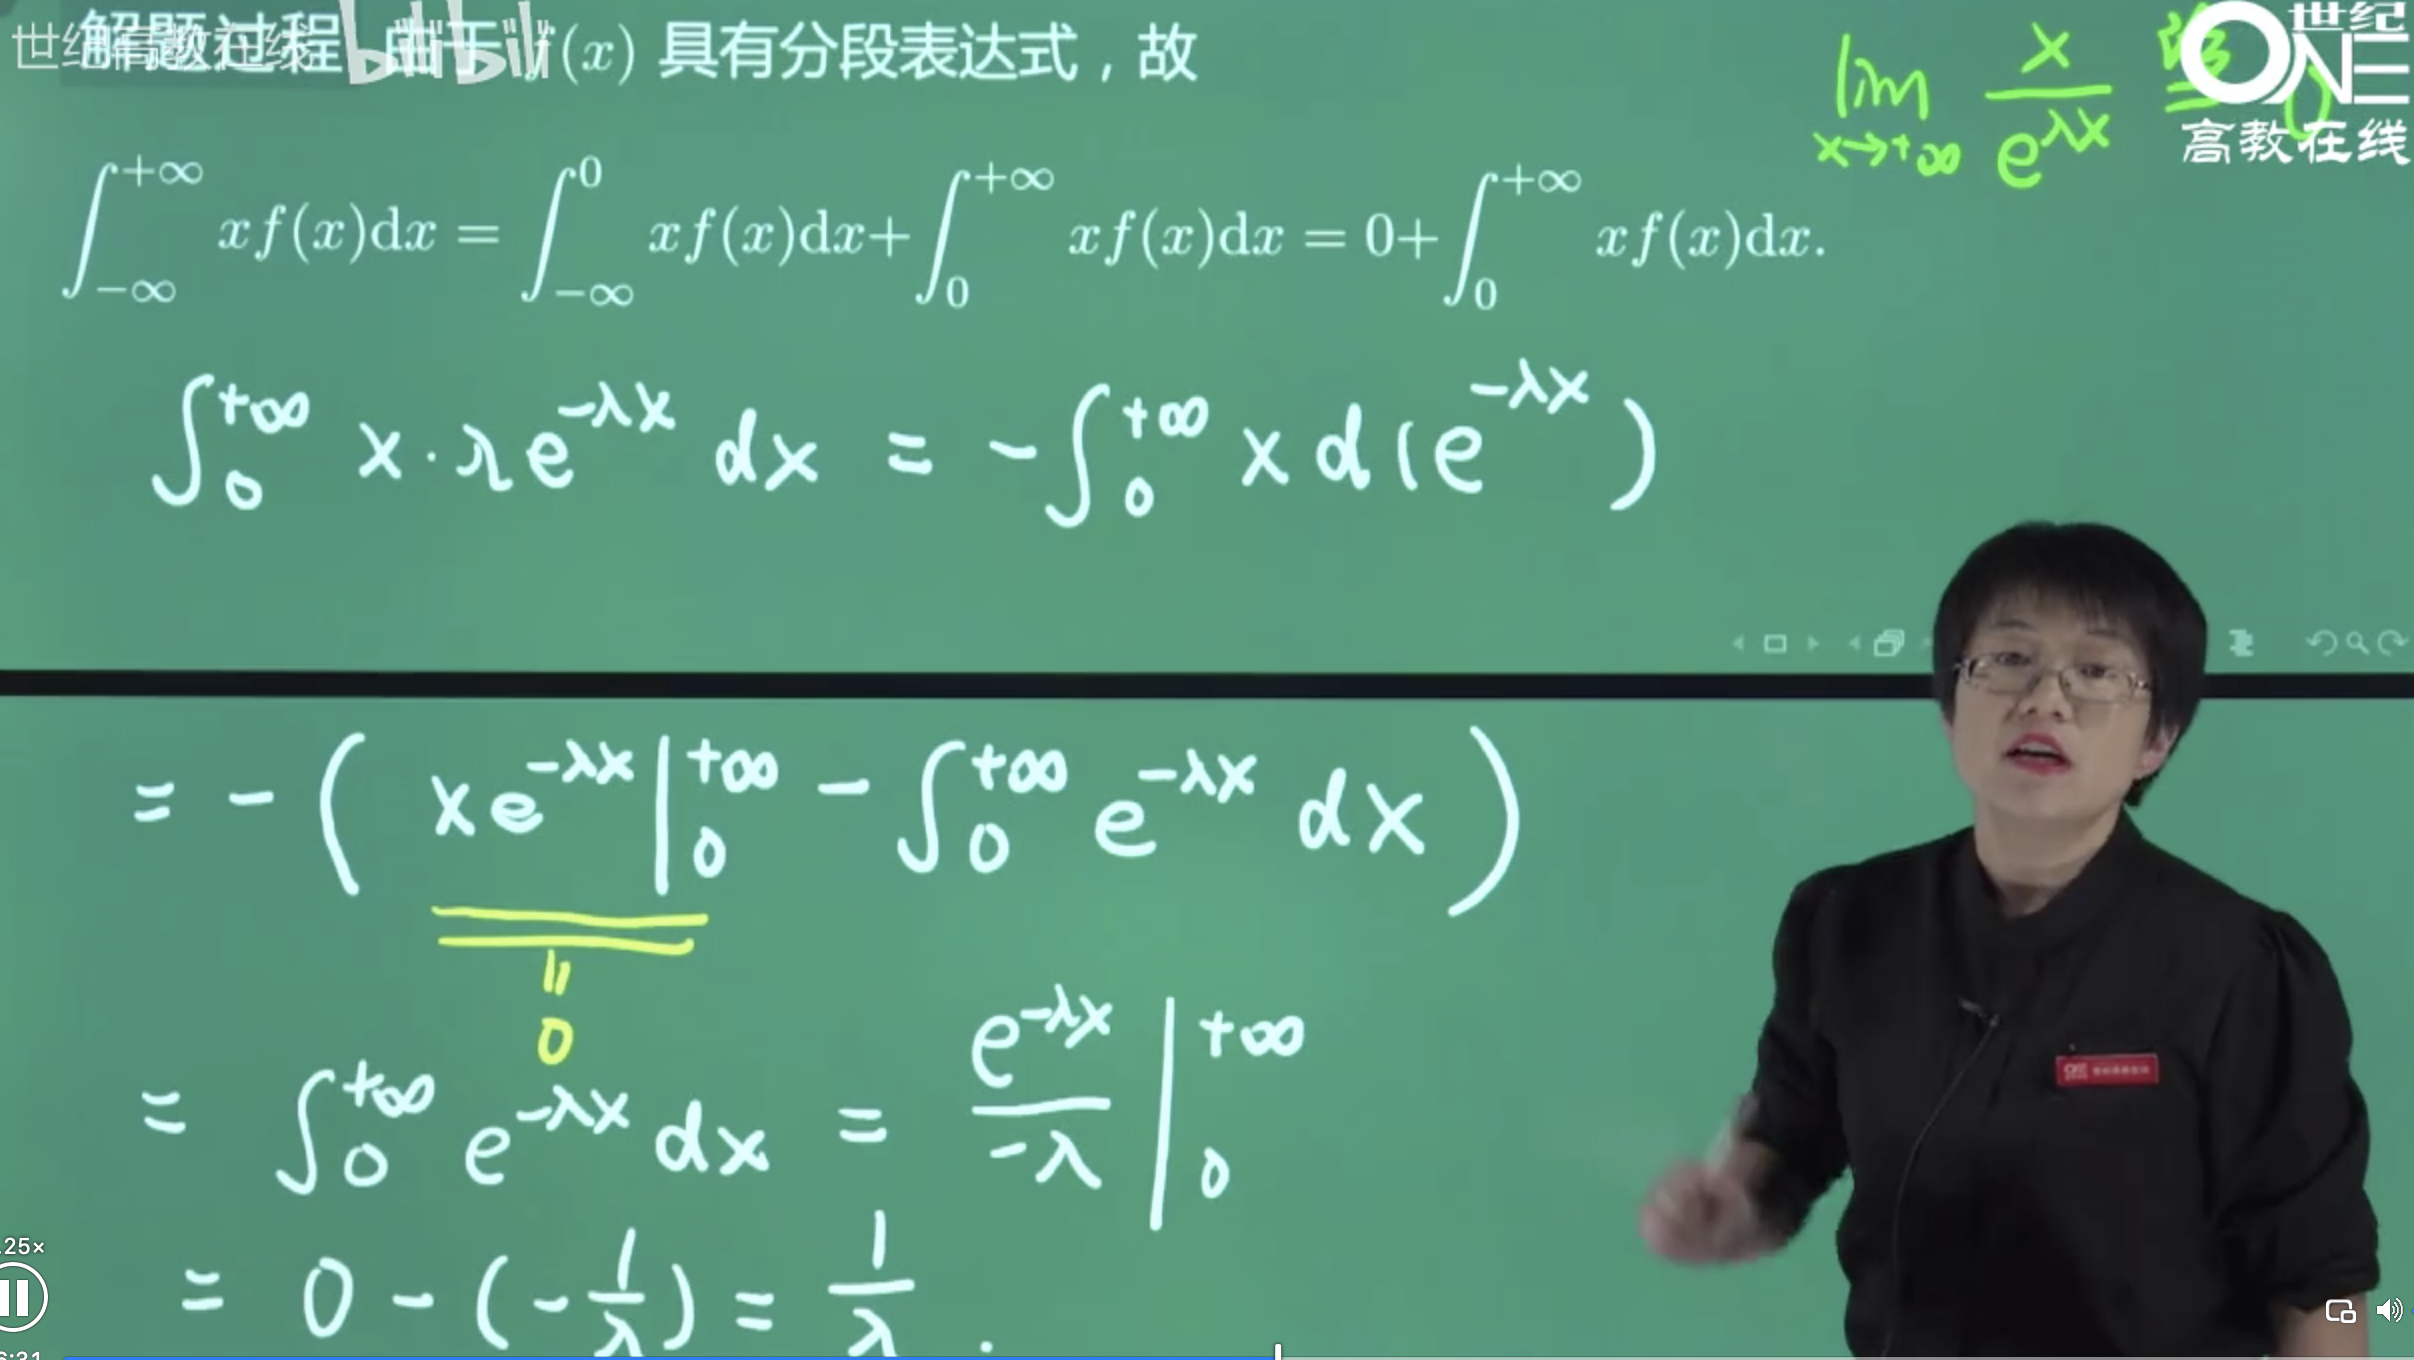 世纪高教在线 bilibili
解题过程 由于 f(x) 具有分段表达式，故
lim x→+∞ x/e^{λx}
世纪
ONE
高教在线
∫_{-∞}^{+∞} xf(x)dx = ∫_{-∞}^{0} xf(x)dx + ∫_{0}^{+∞} xf(x)dx = 0 + ∫_{0}^{+∞} xf(x)dx.
∫_{0}^{+∞} x·λe^{-λx} dx = -∫_{0}^{+∞} x d(e^{-λx})
= -( xe^{-λx}|_{0}^{+∞} - ∫_{0}^{+∞} e^{-λx} dx )
= 0
= ∫_{0}^{+∞} e^{-λx} dx = e^{-λx}/-λ |_{0}^{+∞}
= 0 - (-1/λ) = 1/λ.
.25×
6:31